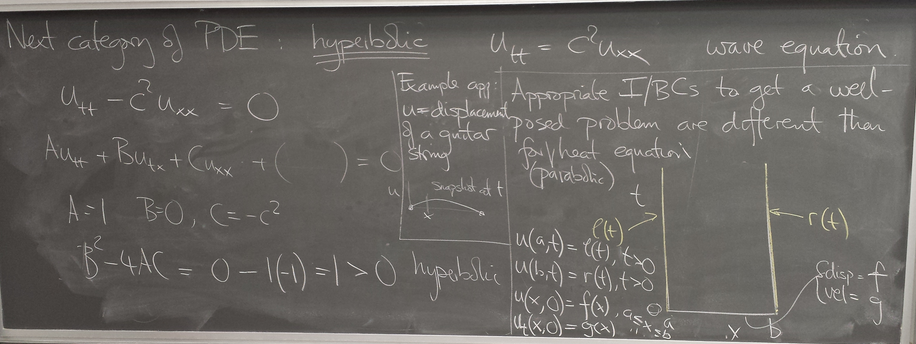 Next category of PDE : hyperbolic u_tt = c²u_xx wave equation.
u_tt - c²u_xx = 0
Au_tt + Bu_tx + Cu_xx + ( ) = 0
A=1 B=0, C=-c²
B²-4AC = 0 - 1(-1) = 1 > 0 hyperbolic
Example app:
u = displacement
of a guitar
string
snapshot at t
u
x
Appropriate I/BCs to get a well-
posed problem are different than
for heat equation
(parabolic)
t
l(t)
r(t)
u(a,t) = l(t), t>0
u(b,t) = r(t), t>0
u(x,0) = f(x), a≤x≤b
u_t(x,0) = g(x)
0
a
x
b
disp = f
vel = g